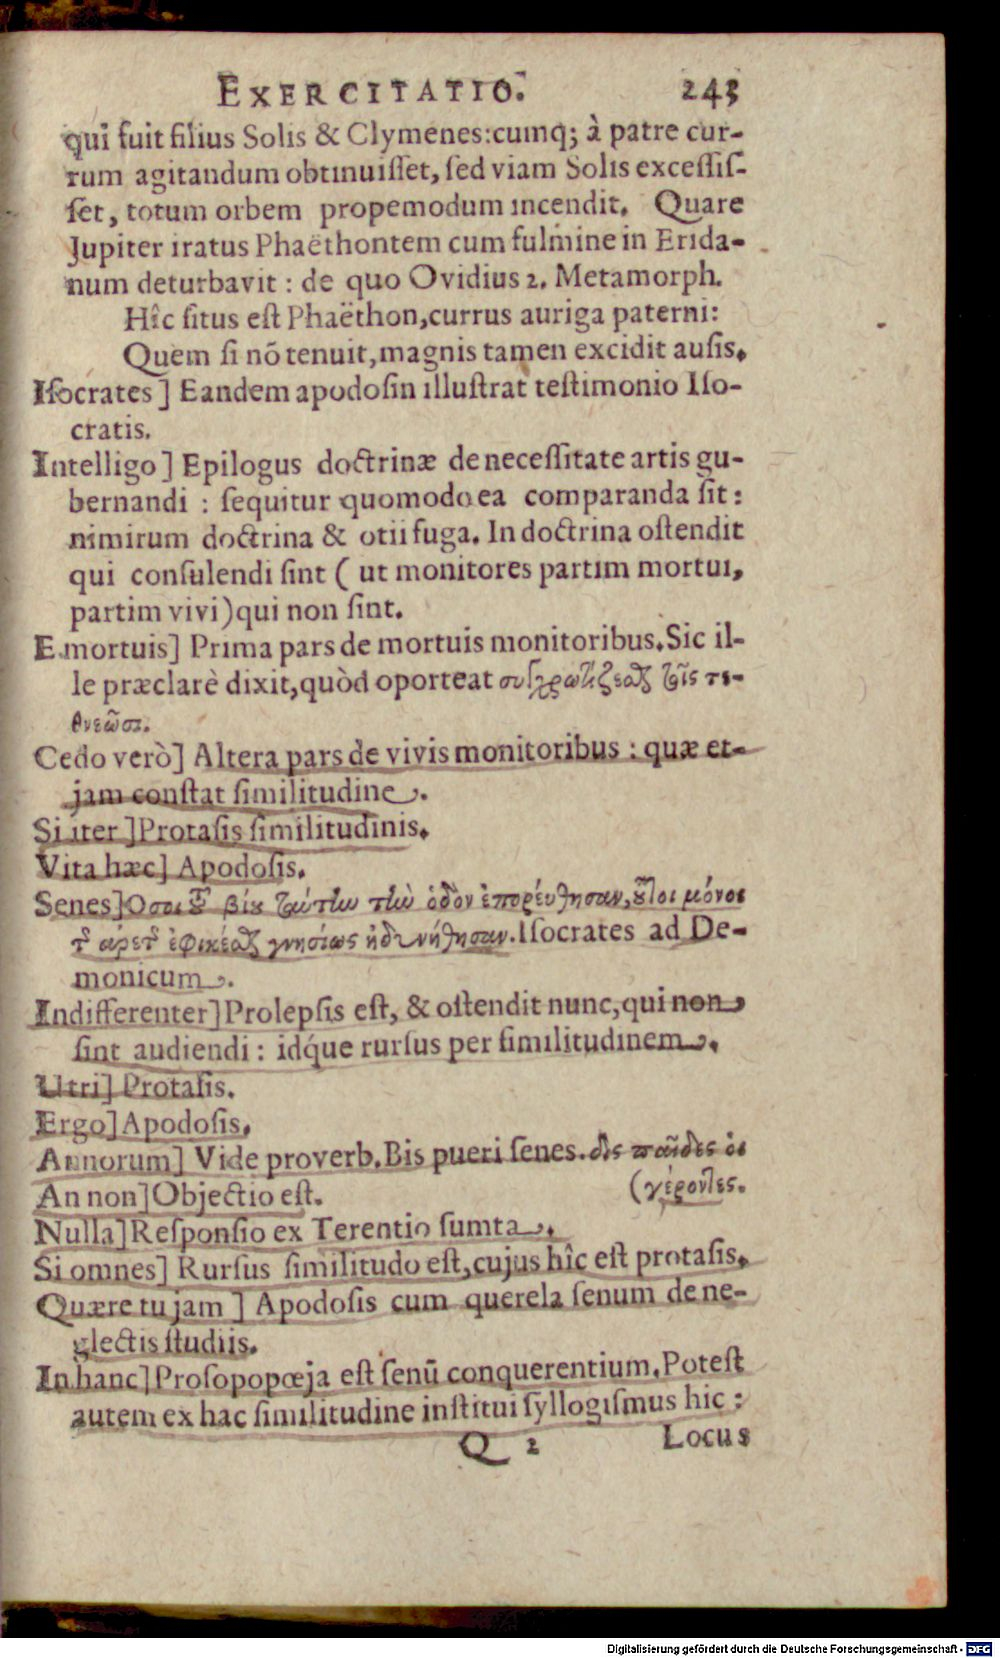 EXERCITATIO. 243
qui fuit filius Solis & Clymenes: cumq; à patre cur-
rum agitandum obtinuisset, sed viam Solis excessis-
set, totum orbem propemodum incendit. Quare
Jupiter iratus Phaëthontem cum fulmine in Erida-
num deturbavit: de quo Ovidius 2. Metamorph.
Hîc situs est Phaëthon, currus auriga paterni:
Quem si nō tenuit, magnis tamen excidit ausis.
Isocrates] Eandem apodosin illustrat testimonio Iso-
cratis.
Intelligo] Epilogus doctrinæ de necessitate artis gu-
bernandi: sequitur quomodo ea comparanda sit:
nimirum doctrina & otii fuga. In doctrina ostendit
qui consulendi sint (ut monitores partim mortui,
partim vivi) qui non sint.
E mortuis] Prima pars de mortuis monitoribus. Sic il-
le præclarè dixit, quòd oporteat συγχρωτίζεσθαι τοῖς τε-
θνεῶσι.
Cedo verò] Altera pars de vivis monitoribus: quæ et-
jam constat similitudine.
Si iter] Protasis similitudinis.
Vita hæc] Apodosis.
Senes] Ὅσοι τοῦ βίου ταύτην τὴν ὁδὸν ἐπορεύθησαν, οὗτοι μόνοι
τῆς ἀρετῆς ἐφικέσθαι γνησίως ἠδυνήθησαν. Isocrates ad De-
monicum.
Indifferenter] Prolepsis est, & ostendit nunc, qui non
sint audiendi: idq́ue rursus per similitudinem.
Utri] Protasis.
Ergo] Apodosis.
Annorum] Vide proverb. Bis pueri senes. δὶς παῖδες οἱ
An non] Objectio est. (γέροντες.
Nulla] Responsio ex Terentio sumta.
Si omnes] Rursus similitudo est, cujus hîc est protasis.
Quære tu jam] Apodosis cum querela senum de ne-
glectis studiis.
In hanc] Prosopopœja est senū conquerentium. Potest
autem ex hac similitudine institui syllogismus hic:
Q 2 Locus
Digitalisierung gefördert durch die Deutsche Forschungsgemeinschaft - DFG